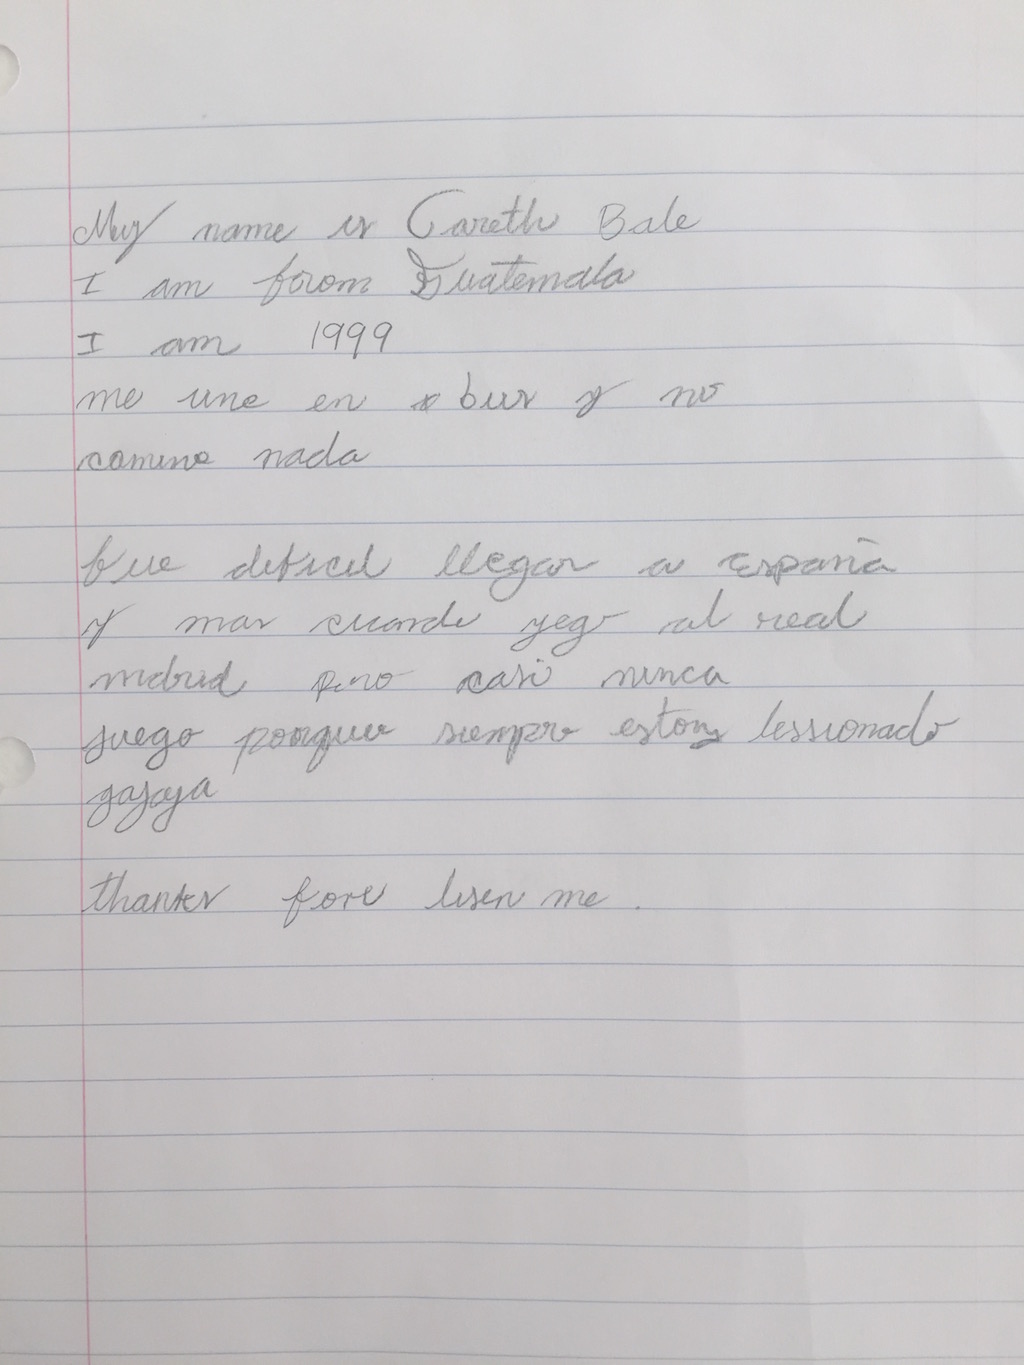 My name is Gareth Bale
I am from Guatemala
I am 1999
me vine en bus y no
camine nada
fue deficil llegar a España
y mas cuando yego al real
mdrid pero casi nunca
juego porque siempre estoy lessionado
jajaja
thanks fore lisen me.